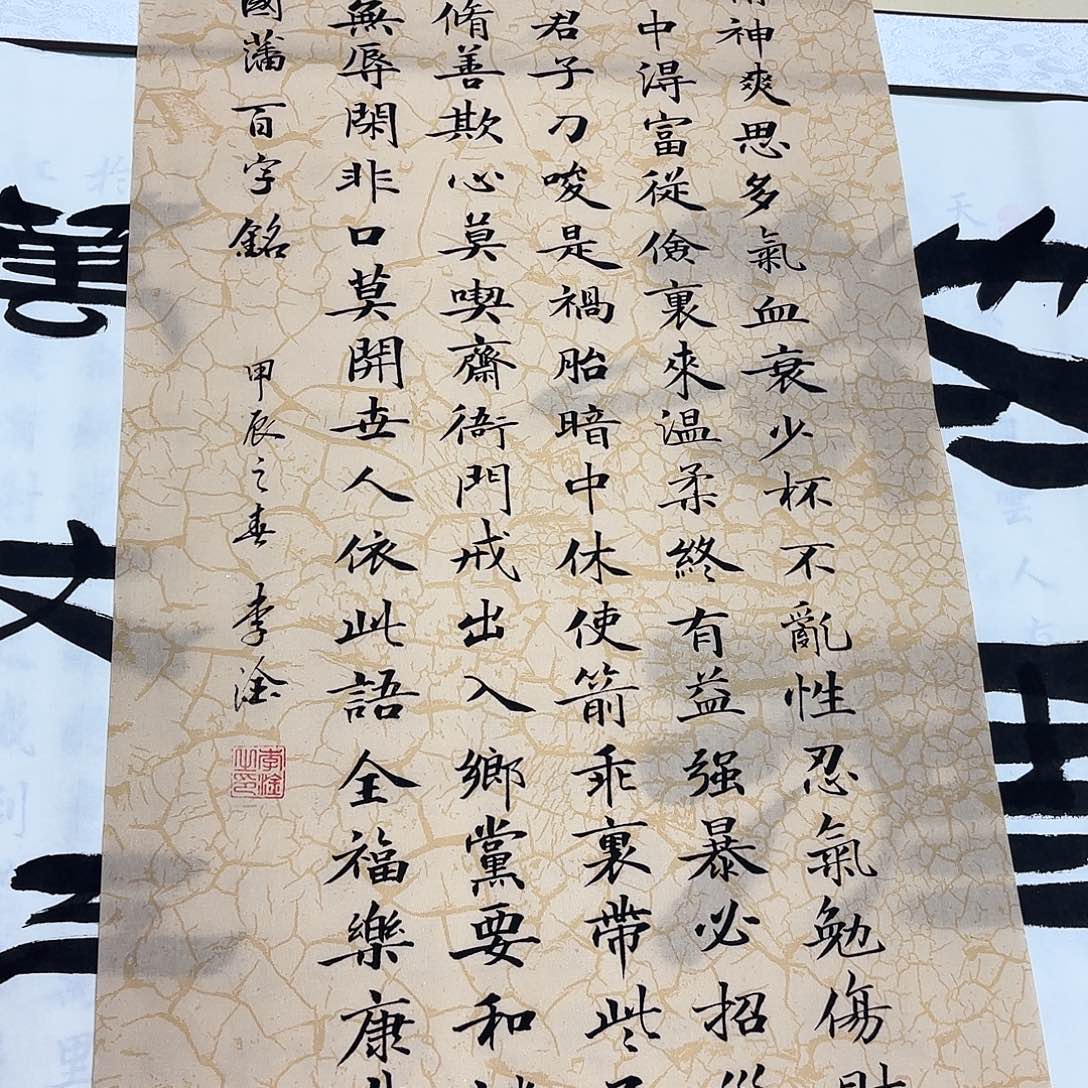 神爽思多氣血衰少杯不亂性忍氣勉傷
中淂富從儉裏來温柔終有益强暴必招
君子刀唆是禍胎暗中休使箭乖裏帶些
脩善欺心莫喫齋衙門戒出入鄉黨要和
無辱閑非口莫開世人依此語全福樂康
國藩百字銘 甲辰之春 李淦
李淦之印